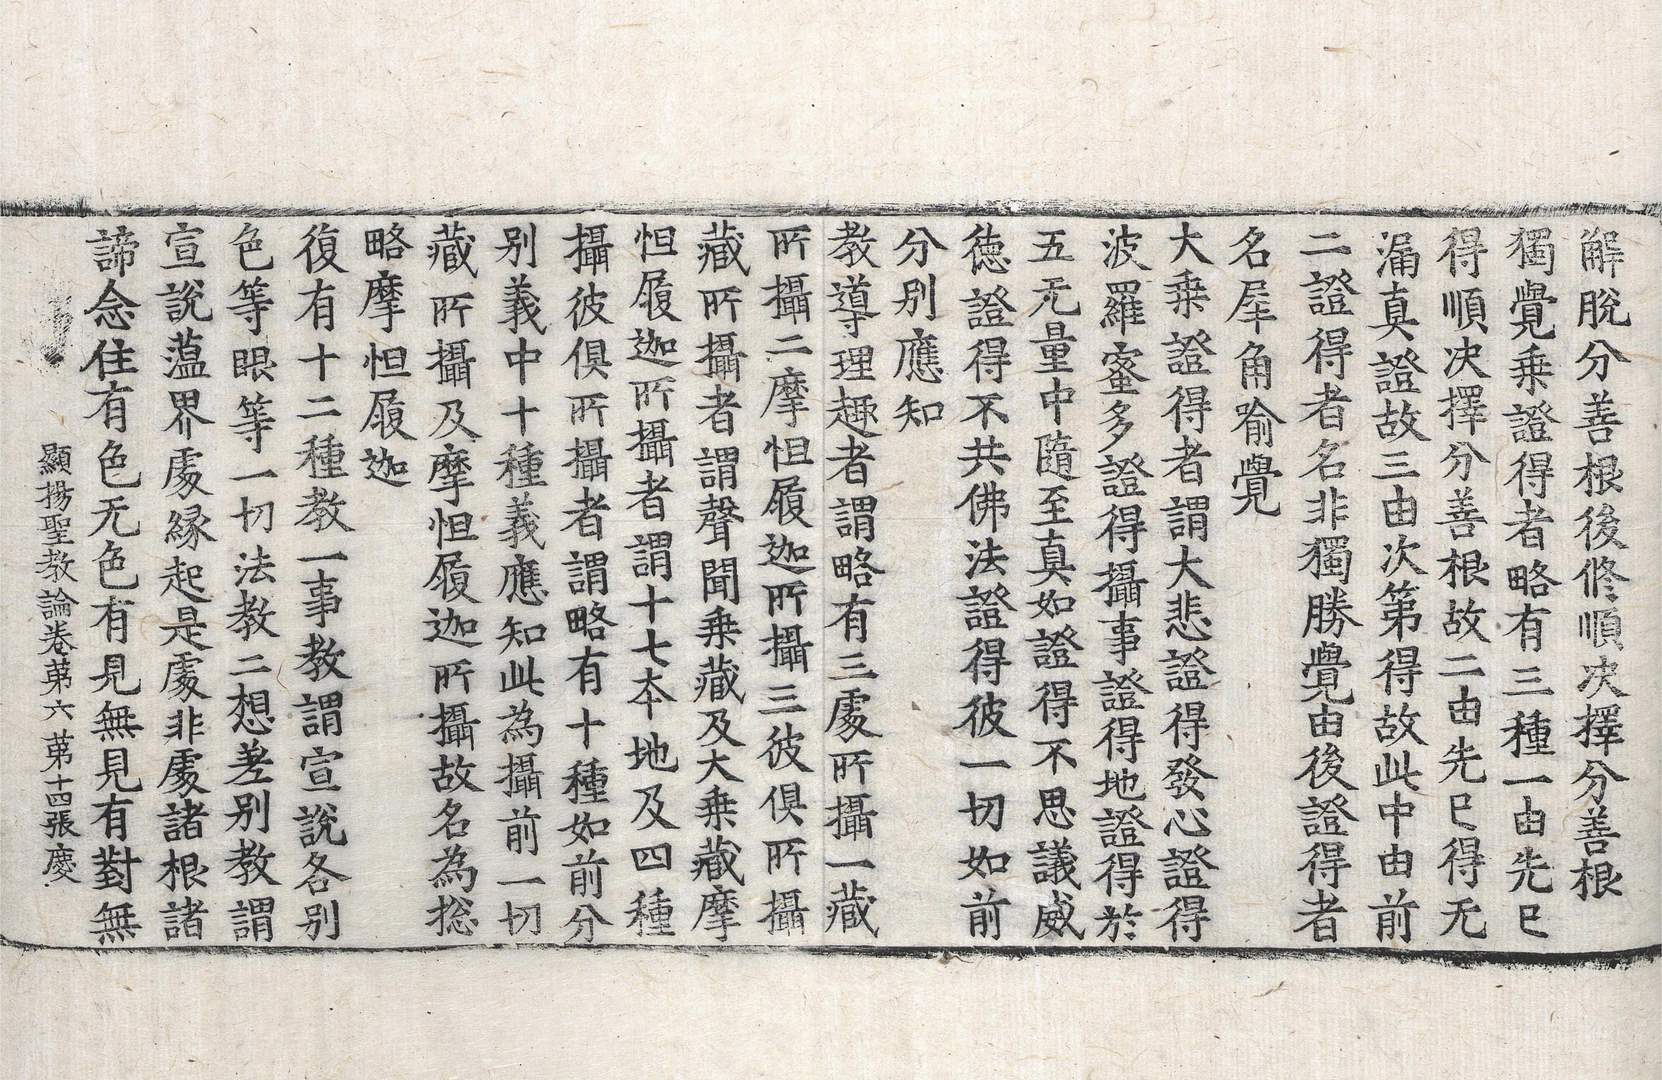 解脫分善根後修順决擇分善根
獨覺乗證得者略有三種一由先巳
得順决擇分善根故二由先巳得无
漏真證故三由次第得故此中由前
二證得者名非獨勝覺由後證得者
名犀角喻覺
大乗證得者謂大悲證得發心證得
波羅蜜多證得攝事證得地證得於
五无量中隨至真如證得不思議威
德證得不共佛法證得彼一切如前
分别應知
教導理趣者謂略有三處所攝一藏
所攝二摩怛履迦所攝三彼俱所攝
藏所攝者謂聲聞乗藏及大乗藏摩
怛履迦所攝者謂十七本地及四種
攝彼俱所攝者謂略有十種如前分
别義中十種義應知此為攝前一切
藏所攝及摩怛履迦所攝故名為捴
略摩怛履迦
復有十二種教一事教謂宣說各别
色等眼等一切法教二想差别教謂
宣說薀界處緣起是處非處諸根諸
諦念住有色无色有見無見有對無
顯揚聖教論卷苐六 苐十四張 慶